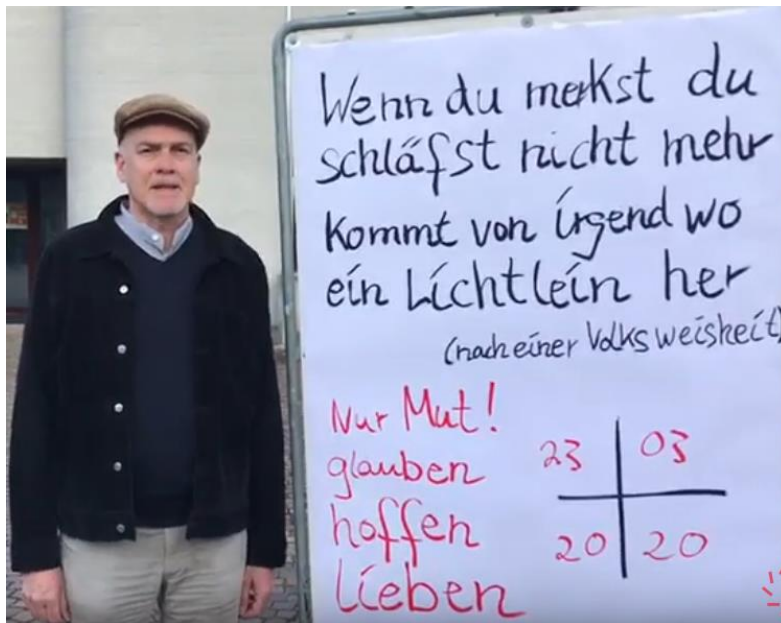 Wenn du merkst du
schläfst nicht mehr
kommt von irgend wo
ein Lichtlein her
(nach einer Volksweisheit)
Nur Mut!
glauben
hoffen
lieben
23 03
20 20